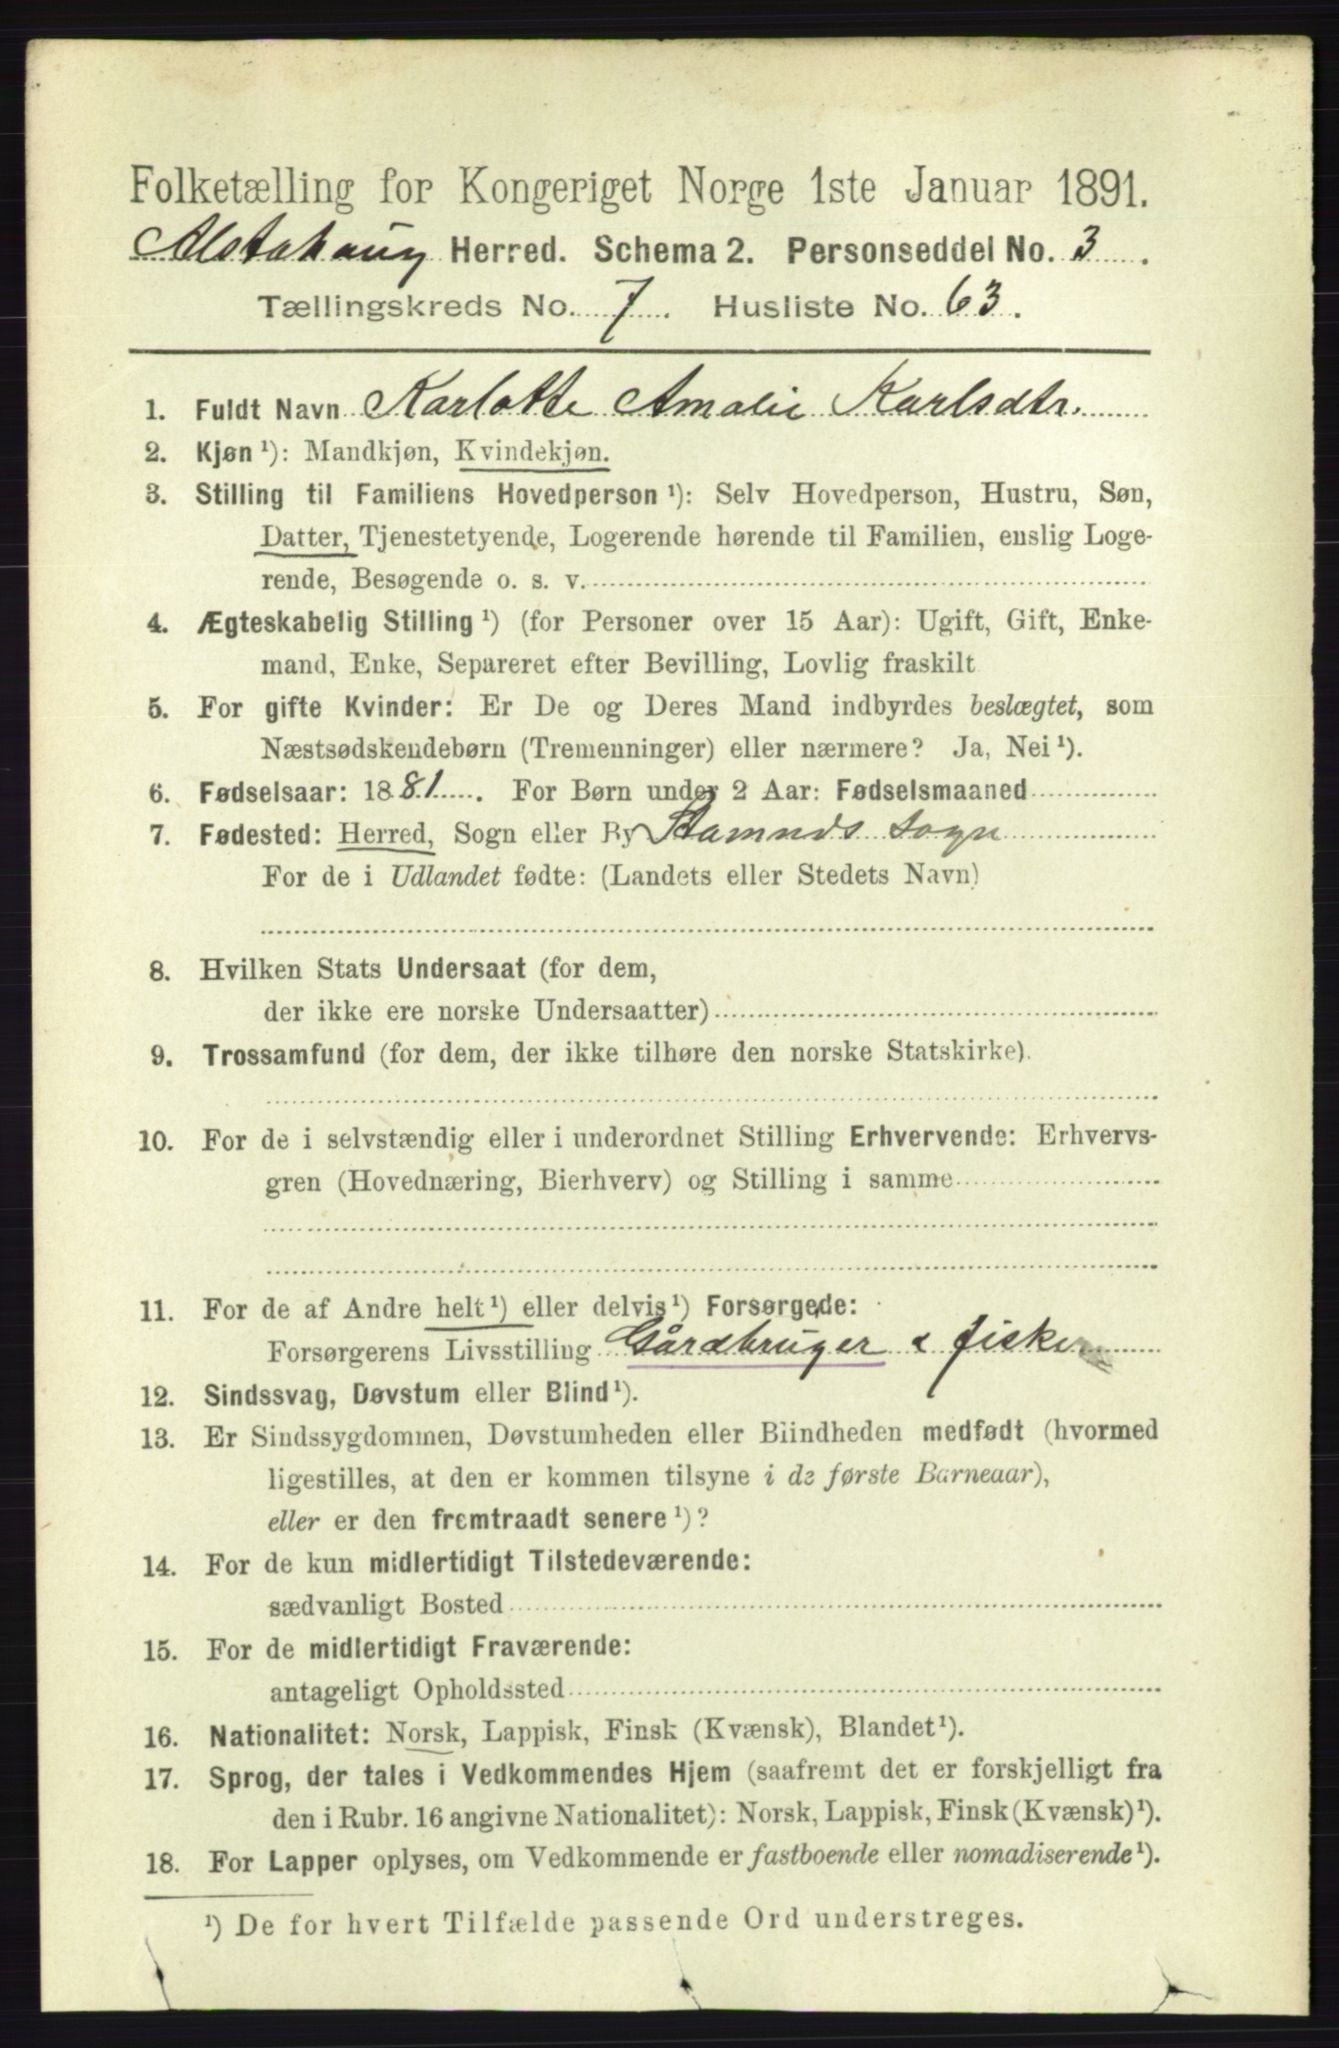 Folketælling for Kongeriget Norge 1ste Januar 1891.
Alstahaug Herred. Schema 2. Personseddel No. 3.
Tællingskreds No. 7. Husliste No. 63.
1. Fuldt Navn Karlotte Amalie Karlsdtr.
2. Kjøn ¹): Mandkjøn, Kvindekjøn.
3. Stilling til Familiens Hovedperson ¹): Selv Hovedperson, Hustru, Søn,
Datter, Tjenestetyende, Logerende hørende til Familien, enslig Loge-
rende, Besøgende o. s. v.
4. Ægteskabelig Stilling ¹) (for Personer over 15 Aar): Ugift, Gift, Enke-
mand, Enke, Separeret efter Bevilling, Lovlig fraskilt
5. For gifte Kvinder: Er De og Deres Mand indbyrdes beslægtet, som
Næstsødskendebørn (Tremenninger) eller nærmere? Ja, Nei ¹).
6. Fødselsaar: 1881. For Børn under 2 Aar: Fødselsmaaned
7. Fødested: Herred, Sogn eller By Stamnes sogn
For de i Udlandet fødte: (Landets eller Stedets Navn)
8. Hvilken Stats Undersaat (for dem,
der ikke ere norske Undersaatter)
9. Trossamfund (for dem, der ikke tilhøre den norske Statskirke).
10. For de i selvstændig eller i underordnet Stilling Erhvervende: Erhvervs-
gren (Hovednæring, Bierhverv) og Stilling i samme
11. For de af Andre helt ¹) eller delvis ¹) Forsørgede:
Forsørgerens Livsstilling Gårdbruger & fisker
12. Sindssvag, Døvstum eller Blind ¹).
13. Er Sindssygdommen, Døvstumheden eller Blindheden medfødt (hvormed
ligestilles, at den er kommen tilsyne i de første Barneaar),
eller er den fremtraadt senere ¹)?
14. For de kun midlertidigt Tilstedeværende:
sædvanligt Bosted
15. For de midlertidigt Fraværende:
antageligt Opholdssted
16. Nationalitet: Norsk, Lappisk, Finsk (Kvænsk), Blandet ¹).
17. Sprog, der tales i Vedkommendes Hjem (saafremt det er forskjelligt fra
den i Rubr. 16 angivne Nationalitet): Norsk, Lappisk, Finsk (Kvænsk) ¹).
18. For Lapper oplyses, om Vedkommende er fastboende eller nomadiserende ¹).
¹) De for hvert Tilfælde passende Ord understreges.